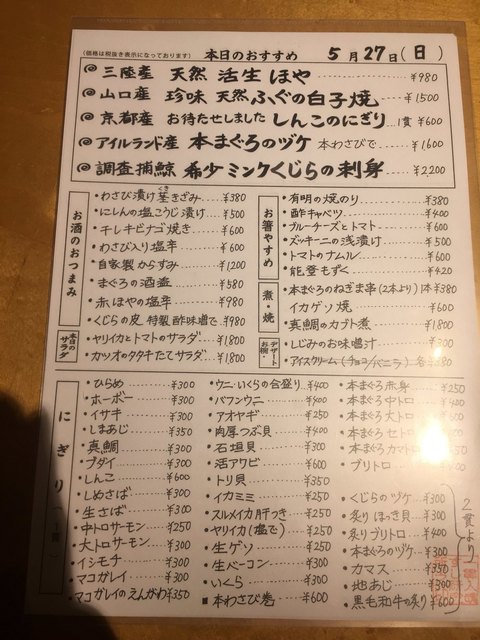 (価格は税抜き表示になっております) 本日のおすすめ 5月27日(日)
三陸産 天然 活生ほや ¥980
山口産 珍味 天然ふぐの白子焼 ¥1500
京都産 お待たせしました しんこのにぎり 1貫 ¥600
アイルランド産 本まぐろのヅケ 本わさびで ¥1600
調査捕鯨 希少ミンククじらの刺身 ¥2200
お酒のおつまみ
・わさび漬け茎きざみ ¥380
・にしんの塩こうじ漬け ¥500
・チレキビナゴ焼き ¥600
・わさび入り塩辛 ¥600
・自家製からすみ ¥1200
・まぐろの酒盗 ¥580
・赤ほやの塩辛 ¥980
・くじらの皮 特製酢味噌で ¥980
本日のサラダ
・ヤリイカとトマトのサラダ ¥1800
・カツオのタタキたてサラダ ¥1800
お箸やすめ
・有明の焼のり ¥380
・酢キャベツ ¥400
・ブルーチーズとトマト ¥600
・ズッキーニの浅漬け ¥500
・トマトのナムル ¥600
・能登もずく ¥420
煮・焼
・本まぐろのねぎま串(2本より)1本 ¥380
イカゲソ焼 ¥600
・真鯛のカブト煮 ¥1800
お椀・デザート
・しじみのお味噌汁 ¥300
・アイスクリーム(チョコ/バニラ)各 ¥380
にぎり(1貫)
・ひらめ ¥300
・ホーボー ¥300
・イサキ ¥300
・しまあじ ¥350
・真鯛 ¥300
・ブダイ ¥300
・しんこ ¥600
・しめさば ¥300
・生さば ¥300
・中トロサーモン ¥250
・大トロサーモン ¥300
・イシモチ ¥300
・マコガレイ ¥300
・マコガレイのえんがわ ¥350
・ウニ・いくらの合盛り ¥400
・バフンウニ ¥400
・アオヤギ ¥250
・肉厚つぶ貝 ¥400
・石垣貝 ¥300
・活アワビ ¥600
・トリ貝 ¥350
・イカミミ ¥250
・スルメイカ肝づき ¥250
・ヤリイカ(塩で) ¥300
・生ゲソ ¥250
・生ベーコン ¥300
・いくら ¥300
■本わさび巻 ¥600
・本まぐろ赤身 ¥250
・本まぐろ中トロ ¥400
・本まぐろ大トロ
・本まぐろセトロ
・本まぐろカマトロ
・ブリトロ
・くじらのヅケ ¥300
・炙りほっき貝 ¥300
・炙りブリトロ ¥400
・本まぐろのヅケ ¥300
・カマス ¥350
・地あじ ¥300
・黒毛和牛の炙り ¥600
2貫より